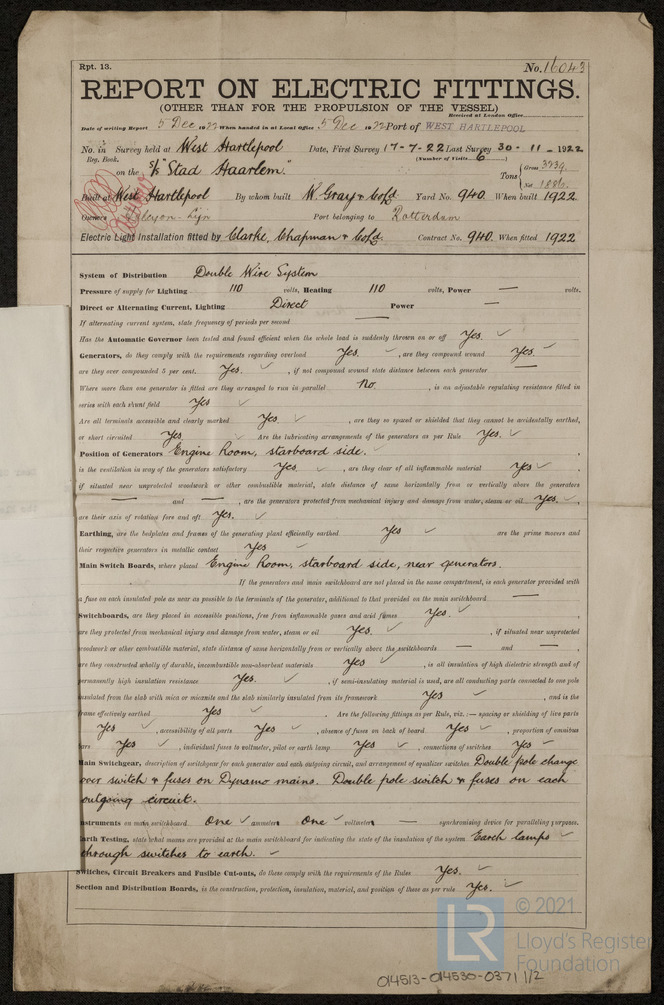 Rpt. 13.
No. 16043
REPORT ON ELECTRIC FITTINGS.
(OTHER THAN FOR THE PROPULSION OF THE VESSEL)
Received at London Office
Date of writing Report 5 Dec 1922 When handed in at Local Office 5 Dec 1922 Port of WEST HARTLEPOOL
No. in Survey held at West Hartlepool Date, First Survey 17-7-22 Last Survey 30-11-1922
Reg. Book. (Number of Visits 6)
on the S/S "Stad Haarlem." Tons { Gross Net
Built at West Hartlepool By whom built W. Gray & Co Ld. Yard No. 940. When built 1922
Owners Halcyon-Lijn Port belonging to Rotterdam
Electric Light Installation fitted by Clarke, Chapman & Co Ld. Contract No. 940. When fitted 1922
System of Distribution Double Wire System
Pressure of supply for Lighting 110 volts, Heating 110 volts, Power — volts.
Direct or Alternating Current, Lighting Direct Power —
If alternating current system, state frequency of periods per second —
Has the Automatic Governor been tested and found efficient when the whole load is suddenly thrown on or off Yes. ✓
Generators, do they comply with the requirements regarding overload Yes. ✓, are they compound wound Yes ✓
are they over compounded 5 per cent. Yes. ✓, if not compound wound state distance between each generator —
Where more than one generator is fitted are they arranged to run in parallel No, is an adjustable regulating resistance fitted in
series with each shunt field Yes ✓
Are all terminals accessible and clearly marked Yes ✓, are they so spaced or shielded that they cannot be accidentally earthed,
or short circuited Yes. ✓ Are the lubricating arrangements of the generators as per Rule Yes. ✓
Position of Generators Engine Room, starboard side. ✓
is the ventilation in way of the generators satisfactory Yes. ✓, are they clear of all inflammable material Yes ✓
if situated near unprotected woodwork or other combustible material, state distance of same horizontally from or vertically above the generators
— and —, are the generators protected from mechanical injury and damage from water, steam or oil Yes. ✓
are their axis of rotating fore and aft Yes. ✓
Earthing, are the bedplates and frames of the generating plant efficiently earthed Yes ✓ are the prime movers and
their respective generators in metallic contact Yes ✓
Main Switch Boards, where placed Engine Room, starboard side, near generators.
If the generators and main switchboard are not placed in the same compartment, is each generator provided with
a fuse on each insulated pole as near as possible to the terminals of the generator, additional to that provided on the main switchboard —
Switchboards, are they placed in accessible positions, free from inflammable gases and acid fumes Yes. ✓
are they protected from mechanical injury and damage from water, steam or oil Yes. ✓, if situated near unprotected
woodwork or other combustible material, state distance of same horizontally from or vertically above the switchboards — and —
are they constructed wholly of durable, incombustible non-absorbent materials Yes ✓, is all insulation of high dielectric strength and of
permanently high insulation resistance Yes. ✓, if semi-insulating material is used, are all conducting parts connected to one pole
insulated from the slab with mica or micanite and the slab similarly insulated from its framework Yes ✓, and is the
frame effectively earthed Yes ✓. Are the following fittings as per Rule, viz. :— spacing or shielding of live parts
Yes ✓, accessibility of all parts Yes ✓, absence of fuses on back of board Yes ✓, proportion of omnibus
bars Yes ✓, individual fuses to voltmeter, pilot or earth lamp Yes ✓, connections of switches Yes ✓
Main Switchgear, description of switchgear for each generator and each outgoing circuit, and arrangement of equalizer switches Double pole change
over switch & fuses on Dynamo mains. Double pole switch & fuses on each
outgoing circuit.
Instruments on main switchboard One ✓ ammeter One ✓ voltmeter — synchronising device for paralleling purposes.
Earth Testing, state what means are provided at the main switchboard for indicating the state of the insulation of the system Earth lamps ✓
through switches to earth. ✓
Switches, Circuit Breakers and Fusible Cut-outs, do these comply with the requirements of the Rules Yes. ✓
Section and Distribution Boards, is the construction, protection, insulation, material, and position of these as per rule Yes. ✓
LR © 2021
Lloyd's Register
Foundation
014513-014530-0371 1/2